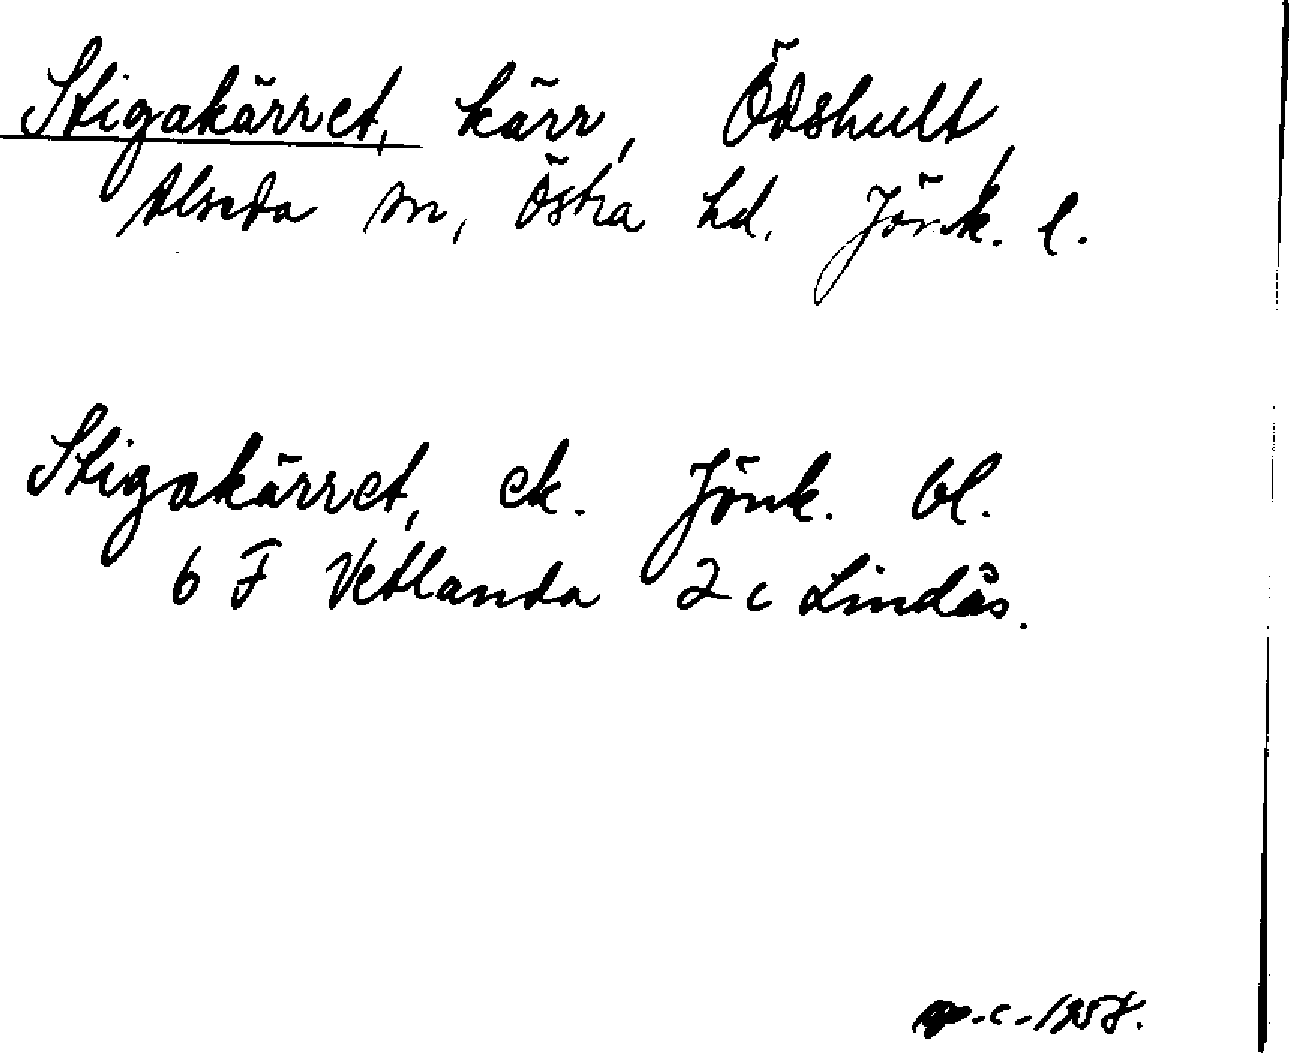 Stigakärret, kärr, Ödshult,
Alseda sn, Östra hd. Jönk. l.
Stigakärret, ek. Jönk. bl.
6 F Vetlanda 2 c Lindås.